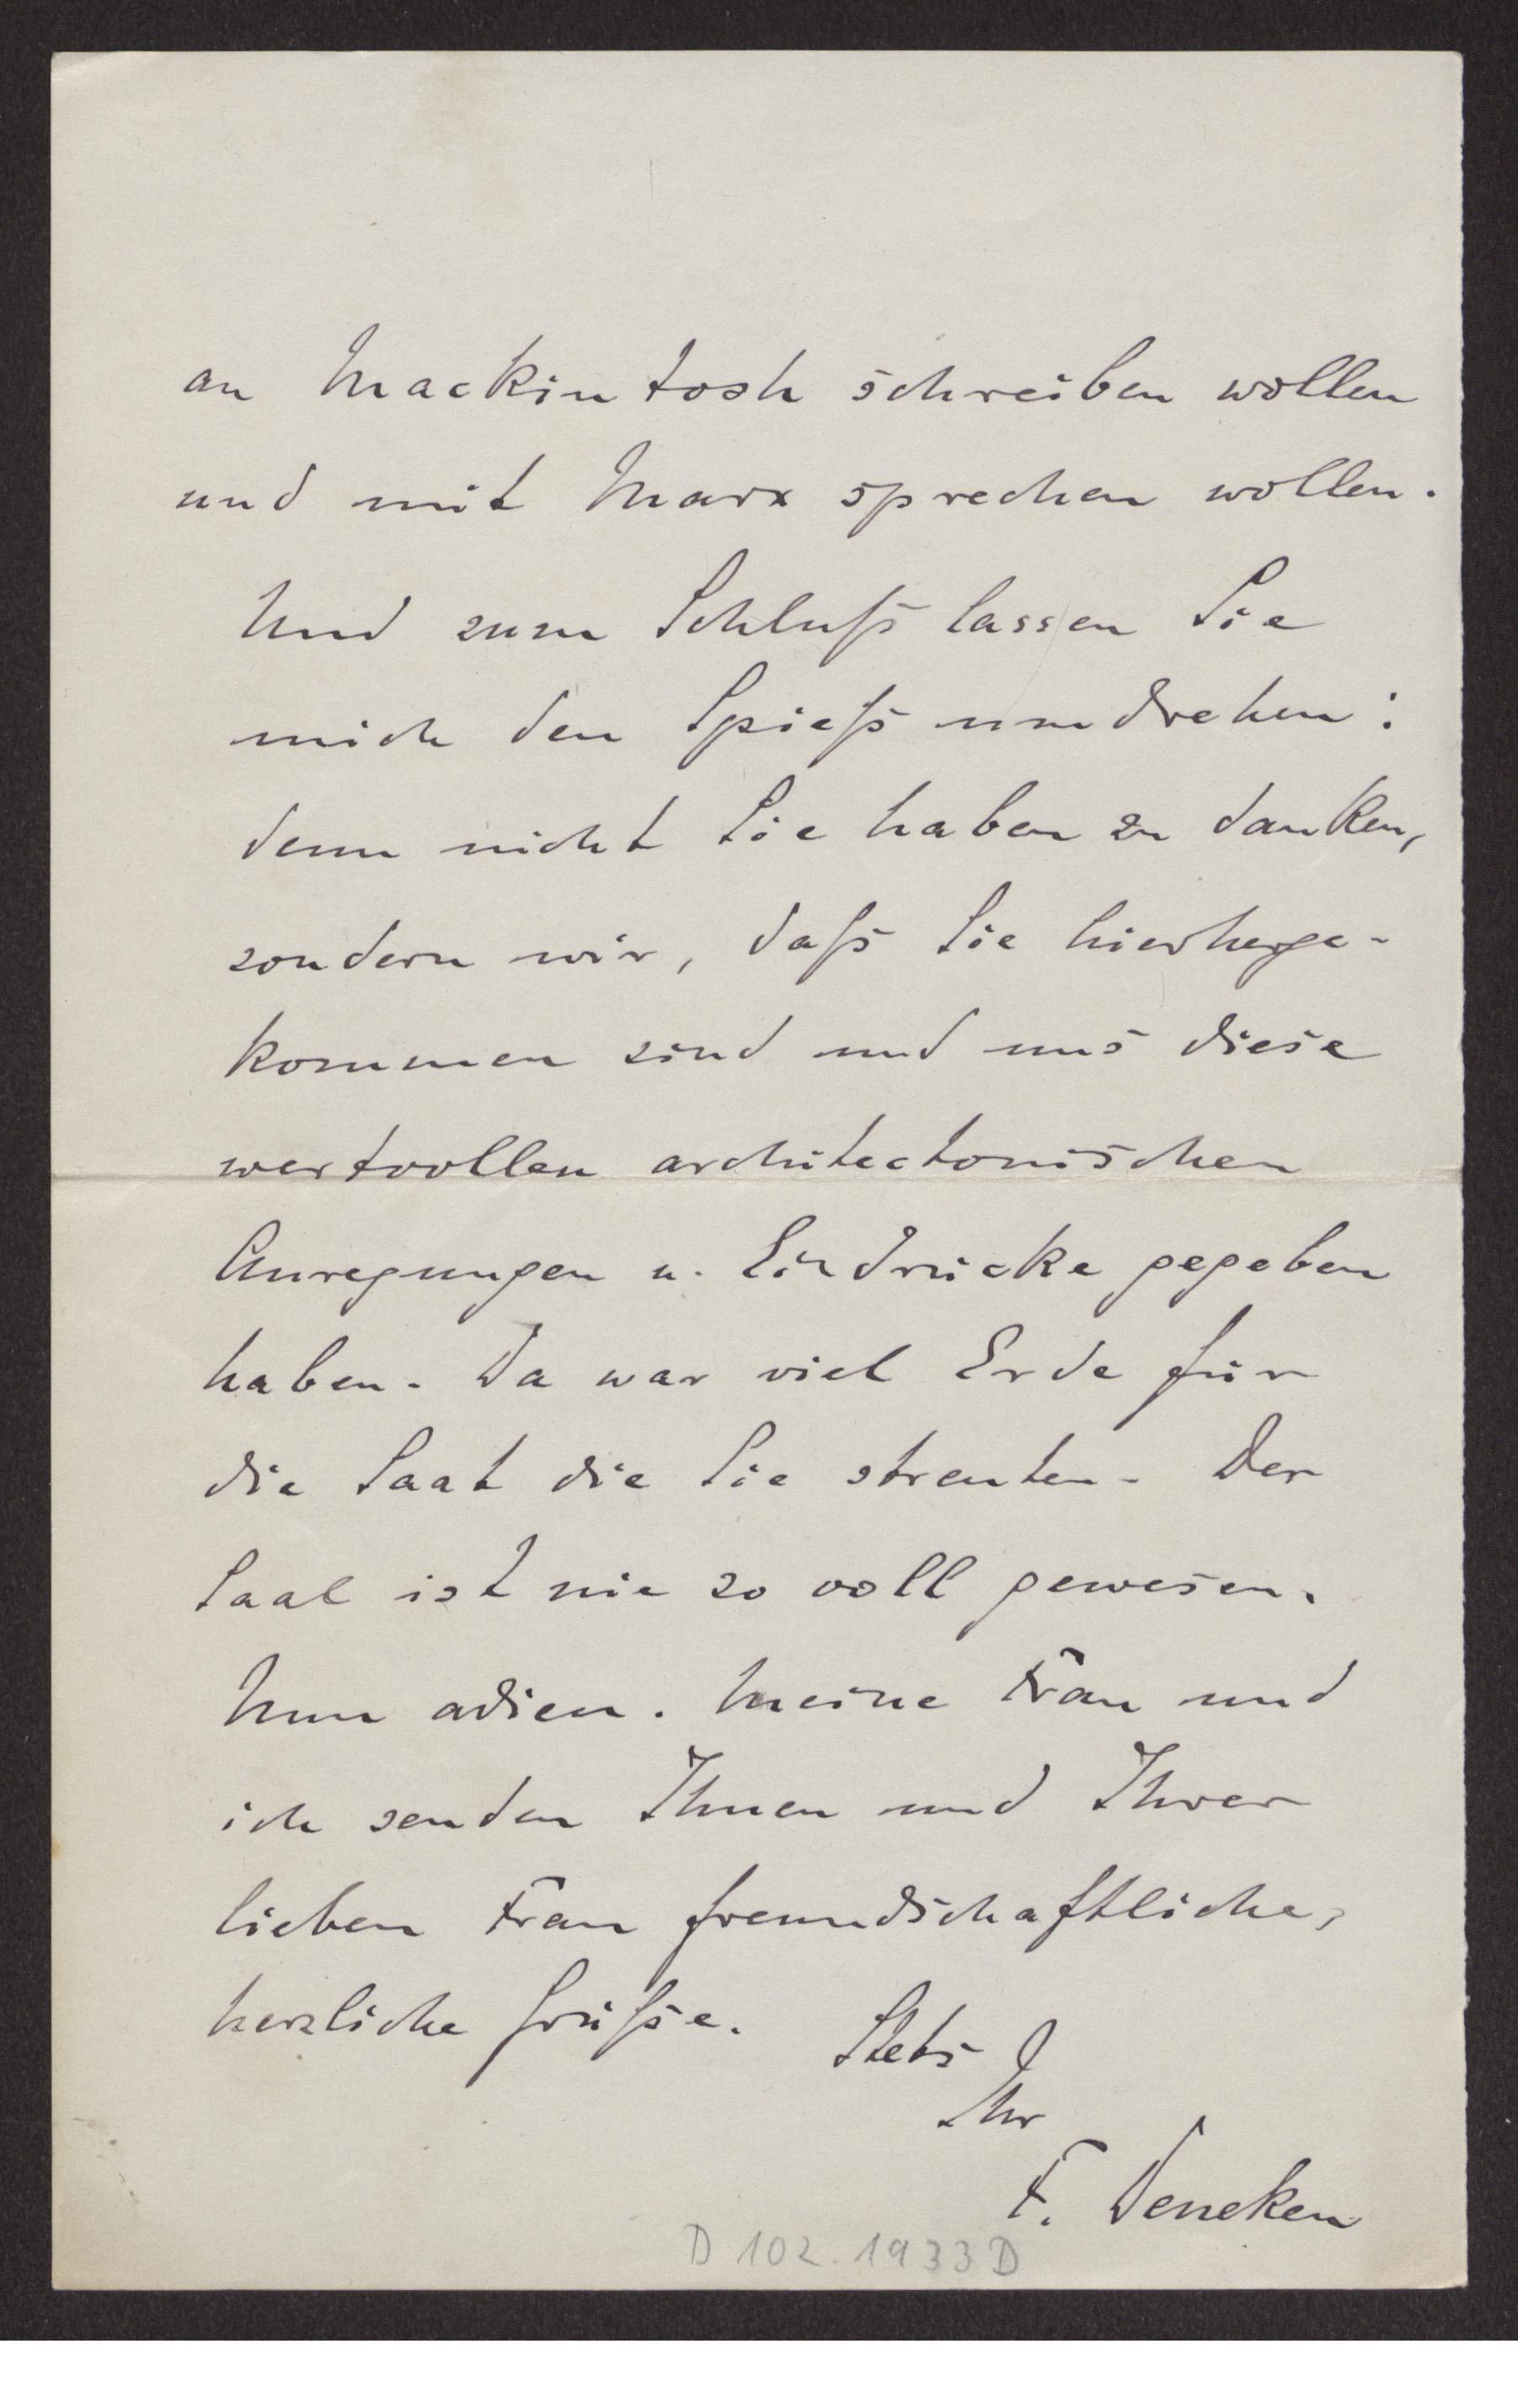 an Mackintosh schreiben wollen
und mit Marx sprechen wollen.
Und zum Schluß lassen Sie
mich den Spieß umdrehen:
denn nicht Sie haben zu danken,
sondern wir, daß Sie hierherge-
kommen sind und uns diese
wertvollen architectonischen
Anregungen u. Eindrücke gegeben
haben. Da war viel Erde für
die Saat die Sie streuten. Der
Saal ist nie so voll gewesen.
Nun adieu. Meine Frau und
ich senden Ihnen und Ihrer
lieben Frau freundschaftliche,
herzliche Grüße. Stets
Ihr
F. Deneken
D 102.1933 D